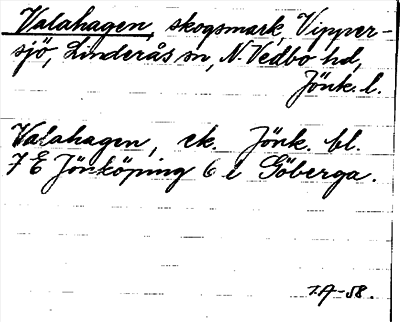 Valahagen, skogsmark, Vipper-
sjö, Linderås sn, N. Vedbo hd,
Jönk. l.
Valahagen, ek. Jönk. bl.
7 E Jönköping 6 i Göberga.
I.A-58.